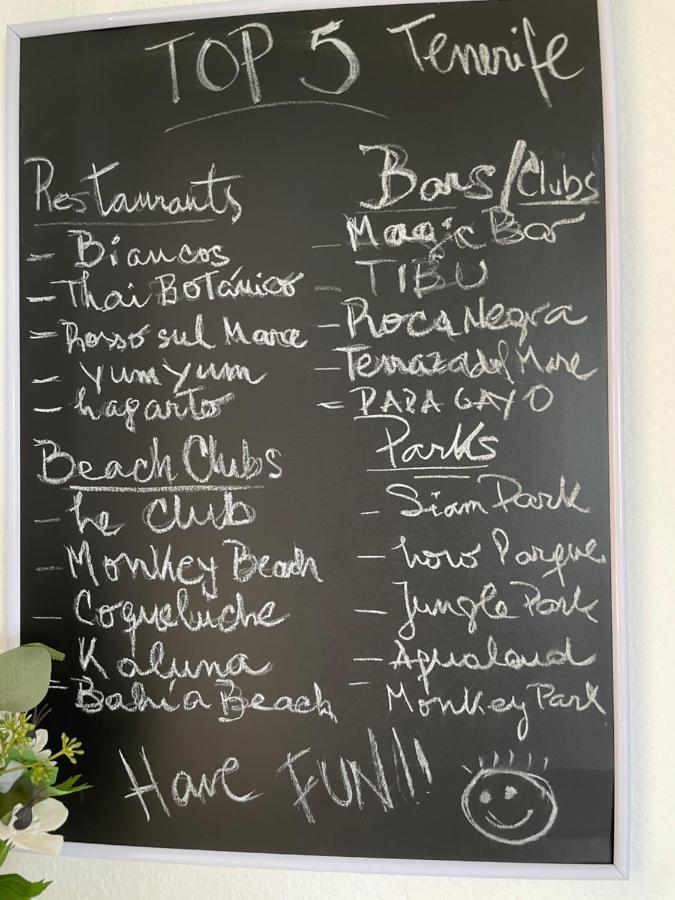 TOP 5 Tenerife
Restaurants
- Biancos
- Thai Botánico
- Rosso sul Mare
- Yum Yum
- Lagarto
Beach Clubs
- Le Club
- Monkey Beach
- Coqueluche
- Kaluna
- Bahía Beach
Bars/Clubs
- Magic Bar
- TIBU
- Roca Negra
- Terraza del Mare
- PAPAGAYO
Parks
- Siam Park
- Loro Parque
- Jungle Park
- Aqualand
- Monkey Park
Have FUN!!!